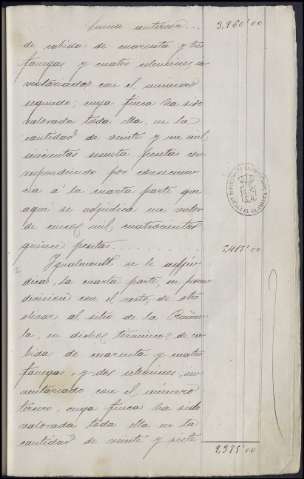 Suma anterior . . . 3,960'00
de cabida de cuarenta y tres
fanegas y cuatro celemines in-
ventariado con el número
segundo; cuya finca ha sido
valorada toda ella, en la
cantidad de veinte y un mil
seiscientas sesenta pesetas co-
rrespondiendo por consecuen-
cia á la cuarta parte que
aquí se adjudica un valor
de mil cuatrocientas
quince pesetas. . . . 5,415'00
Igualmente se le adju-
dica, la cuarta parte, en proin-
división con el resto, de otro
olivar al sitio de la
en dichos términos, de ca-
bida de cuarenta y cuatro
fanegas, y dos celemines, in-
ventariado con el número
tercero, cuya finca ha sido
valorada toda ella en la
cantidad de veinte y siete